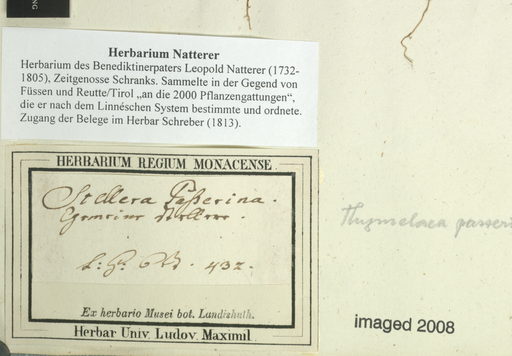 Herbarium Natterer
Herbarium des Benediktinerpaters Leopold Natterer (1732-
1805), Zeitgenosse Schranks. Sammelte in der Gegend von
Füssen und Reutte/Tirol „an die 2000 Pflanzengattungen“,
die er nach dem Linnéschen System bestimmte und ordnete.
Zugang der Belege im Herbar Schreber (1813).
HERBARIUM REGIUM MONACENSE
Stellera Paßerina.
432.
Ex herbario Musei bot. Landishuth.
Herbar Univ. Ludov. Maximil
Thymelaea passeri
imaged 2008